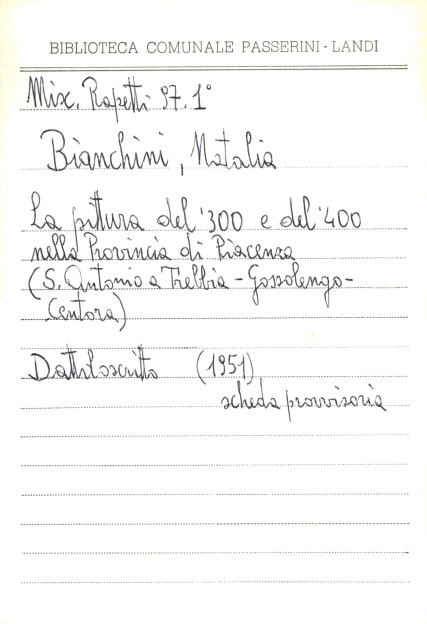 BIBLIOTECA COMUNALE PASSERINI-LANDI
Misc. Rapetti 97. 1°
Bianchini, Natalia
La pittura del '300 e del '400
nella Provincia di Piacenza
(S. Antonio a Trebbia - Gossolengo -
Centora)
Dattiloscritto (1951)
scheda provvisoria